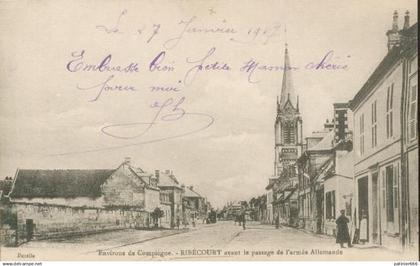 Le 27 Janvier 1917
Embrasse bien petite Maman chérie
pour moi
Environs de Compiègne. - RIBÉCOURT avant le passage de l'armée Allemande